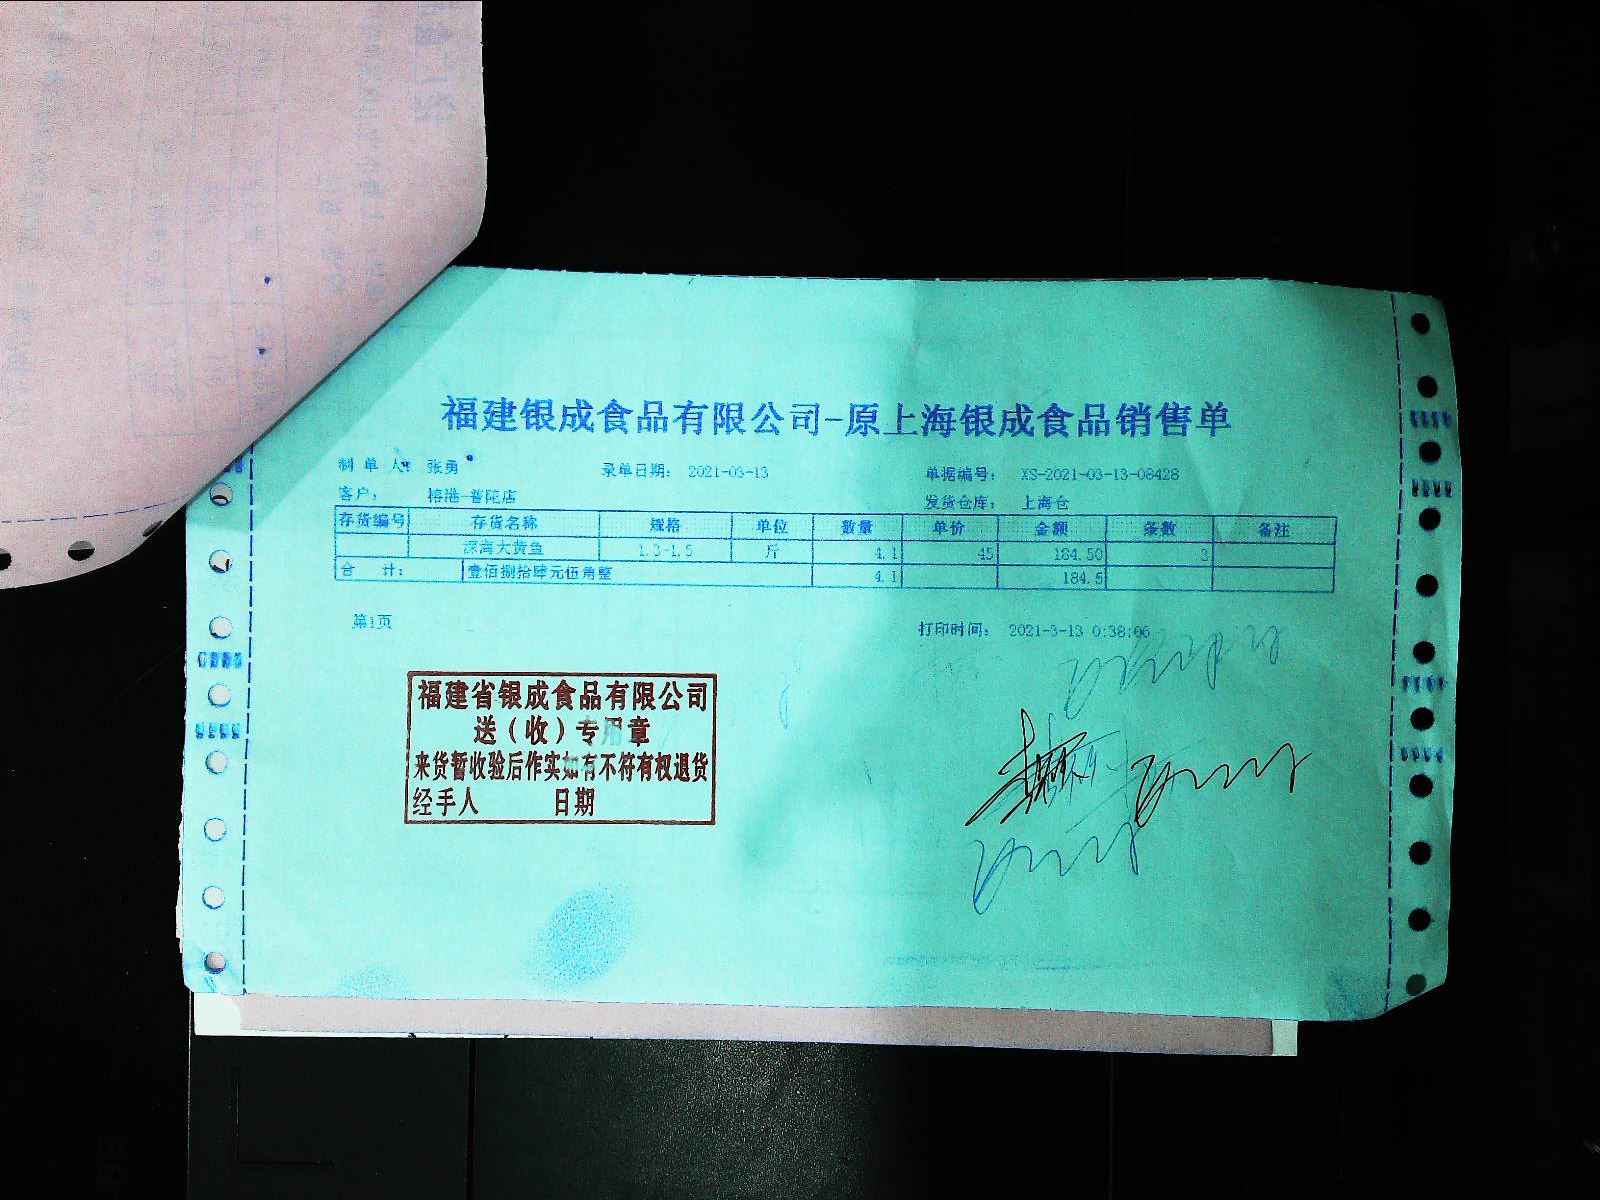 福建银成食品有限公司-原上海银成食品销售单
制单人: 张勇 录单日期: 2021-03-13 单据编号: XS-2021-03-13-08428
客户: 榕港-普陀店 发货仓库: 上海仓
存货编号 存货名称 规格 单位 数量 单价 金额 条数 备注
深海大黄鱼 1.3-1.5 斤 4.1 45 184.50 3
合 计: 壹佰捌拾肆元伍角整 4.1 184.5
第1页 打印时间: 2021-3-13 0:38:06
福建省银成食品有限公司
送（收）专用章
来货暂收验后作实如有不符有权退货
经手人 日期